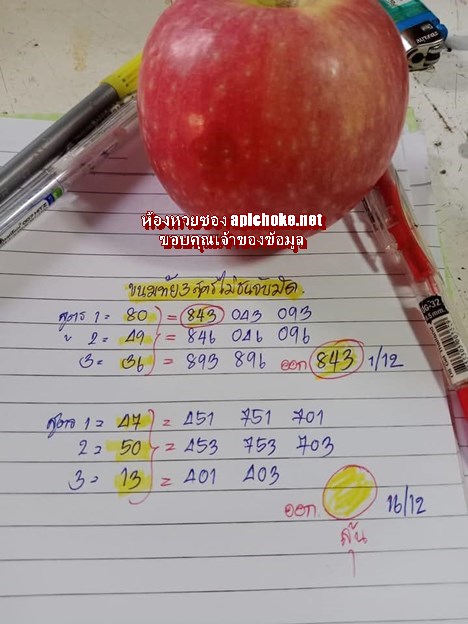 ห้องหวยซอง apichoke.net
ขอบคุณเจ้าของข้อมูล
สูตร 1 = 80 = 843 043 093
" 2 = 49 = 846 046 096
3 = 36 = 893 896 ออก 843 1/12
สูตร 1 = 47 = 451 751 701
2 = 50 = 453 753 703
3 = 13 = 401 403
ออก 16/12
ลุ้น